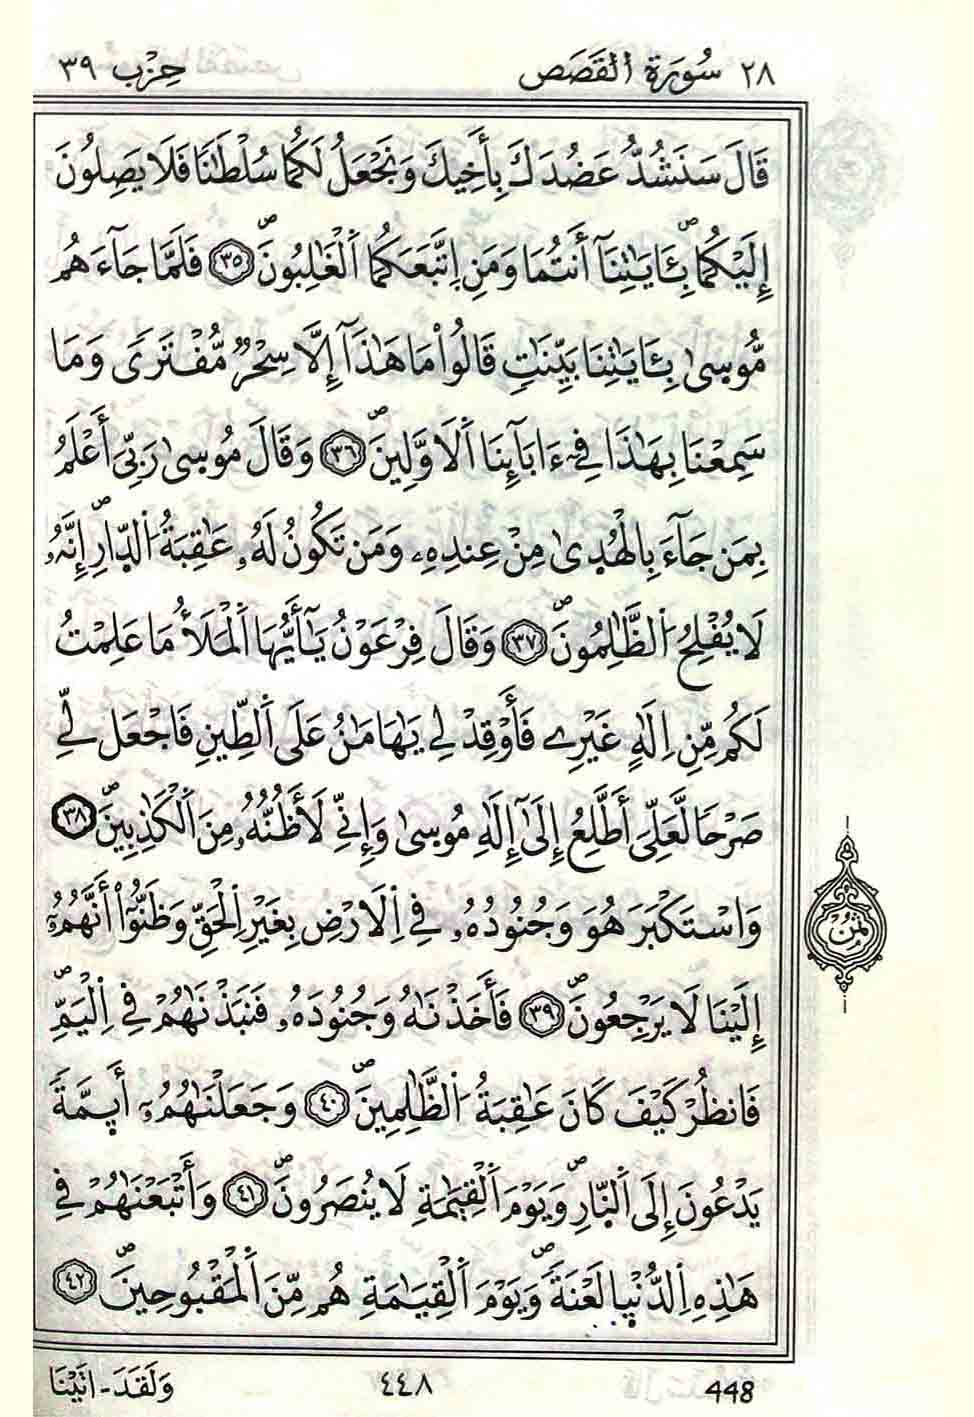 ٢٨ سُورَةُ الْقَصَصِ حِزْب ٣٩
قَالَ سَنَشُدُّ عَضُدَكَ بِأَخِيكَ وَنَجْعَلُ لَكُمَا سُلْطَٰنًا فَلَا يَصِلُونَ
إِلَيْكُمَاۖ بِـَٔايَٰتِنَآ أَنتُمَا وَمَنِ اِتَّبَعَكُمَا اَ۬لْغَٰلِبُونَۖ ٣٥ فَلَمَّا جَآءَهُم
مُّوسىٰ بِـَٔايَٰتِنَا بَيِّنَٰتٖ قَالُواْ مَا هَٰذَآ إِلَّا سِحْرٞ مُّفْتَرَىٗ وَمَا
سَمِعْنَا بِهَٰذَا فِےٓ ءَابَآئِنَا اَ۬لَاوَّلِينَۖ ٣٦ وَقَالَ مُوسىٰ رَبِّيَ أَعْلَمُ
بِمَن جَآءَ بِالْهُدىٰ مِنْ عِندِهِۦ وَمَن تَكُونُ لَهُۥ عَٰقِبَةُ اُ۬لدّ۪ارِۖ إِنَّهُۥ
لَا يُفْلِحُ اُ۬لظَّٰلِمُونَۖ ٣٧ وَقَالَ فِرْعَوْنُ يَٰٓأَيُّهَا اَ۬لْمَلَأُ مَا عَلِمْتُ
لَكُم مِّنِ اِلَٰهٍ غَيْرِےۖ فَأَوْقِدْ لِے يَٰهَٰمَٰنُ عَلَى اَ۬لطِّينِ فَاجْعَل لِّے
صَرْحاٗ لَّعَلِّيَ أَطَّلِعُ إِلَىٰٓ إِلَٰهِ مُوسىٰ وَإِنِّے لَأَظُنُّهُۥ مِنَ اَ۬لْكَٰذِبِينَۖ ٣٨
وَاسْتَكْبَرَ هُوَ وَجُنُودُهُۥ فِے اِ۬لَارْضِ بِغَيْرِ اِ۬لْحَقِّ وَظَنُّوٓاْ أَنَّهُمُۥٓ
إِلَيْنَا لَا يَرْجِعُونَۖ ٣٩ فَأَخَذْنَٰهُ وَجُنُودَهُۥ فَنَبَذْنَٰهُمْ فِے اِ۬لْيَمِّۖ
فَانظُرْ كَيْفَ كَانَ عَٰقِبَةُ اُ۬لظَّٰلِمِينَۖ ٤٠ وَجَعَلْنَٰهُمُۥٓ أَئِمَّةٗ
يَدْعُونَ إِلَى اَ۬لنّ۪ارِۖ وَيَوْمَ اَ۬لْقِيَٰمَةِ لَا يُنصَرُونَۖ ٤١ وَأَتْبَعْنَٰهُمْ فِے
هَٰذِهِ اِ۬لدُّنْي۪ا لَعْنَةٗۖ وَيَوْمَ اَ۬لْقِيَٰمَةِ هُم مِّنَ اَ۬لْمَقْبُوحِينَۖ ٤٢
ثُمُن
وَلَقَدَ - اتَيْنَا ٤٤٨ 448